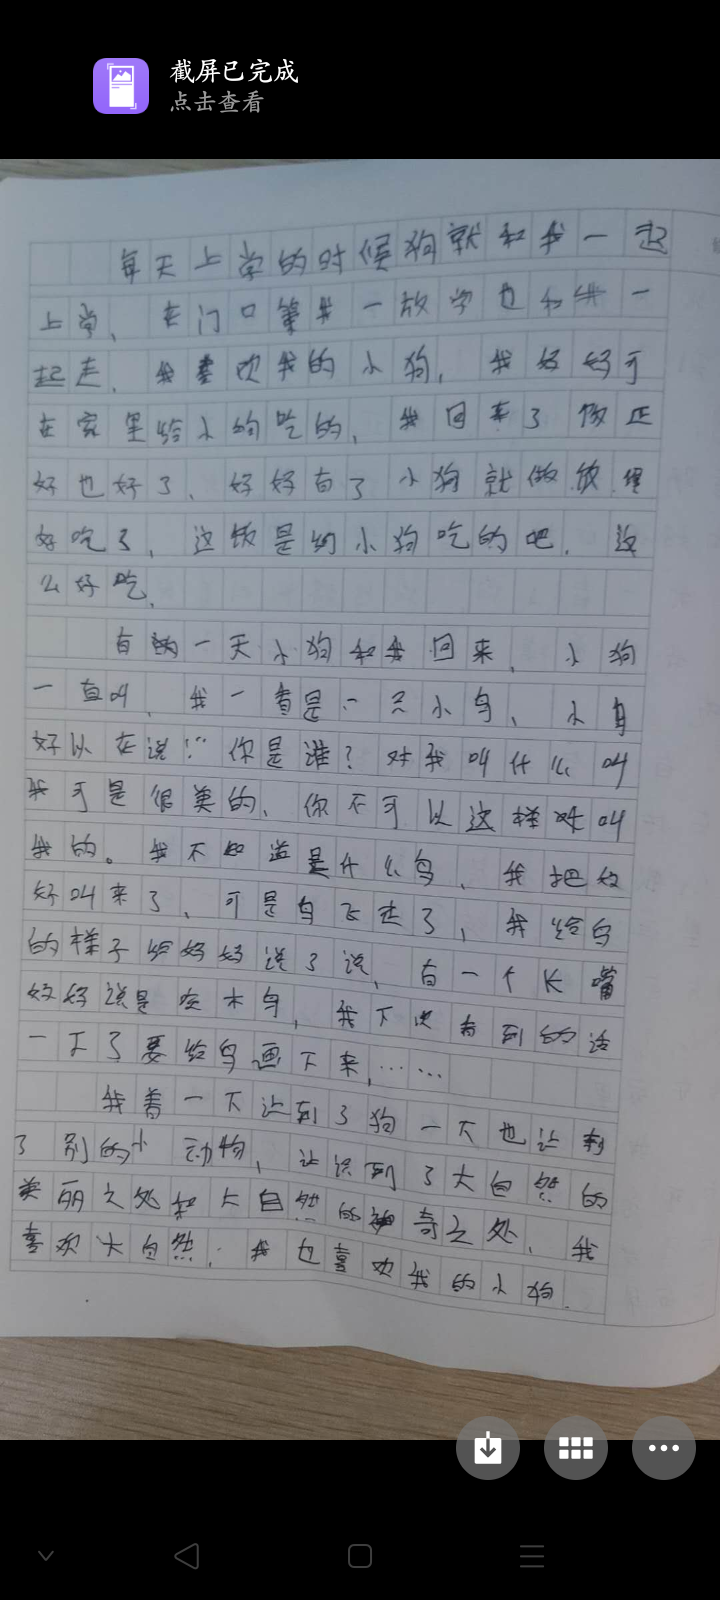 截屏已完成
点击查看
每天上学的时候狗就和我一起
上学、在门口等我一放学也和我一
起走、我喜欢我的小狗，我好好可
在家里给小狗吃的、我回来了饭正
好也好了、好好有了小狗就做饭
好吃了，这饭是给小狗吃的吧．这
么好吃、
有的一天小狗和我回来、小狗
一直叫，我一看是一只小鸟、小鸟
好以在说：“你是谁？对我叫什么叫
我可是很美的、你不可以这样对叫
我的。我不知道是什么鸟、我把好
好叫来了、可是鸟飞走了，我给鸟
的样子给好好说了说，有一个长嘴
好好说是啄木鸟，我下次看到的话
一下了要给鸟画下来，……
我着一下让到了狗一下也让到
了别的小动物、让识到了大自然的
美丽之处和大自然的神奇之处、我
喜欢大自然．我也喜欢我的小狗．